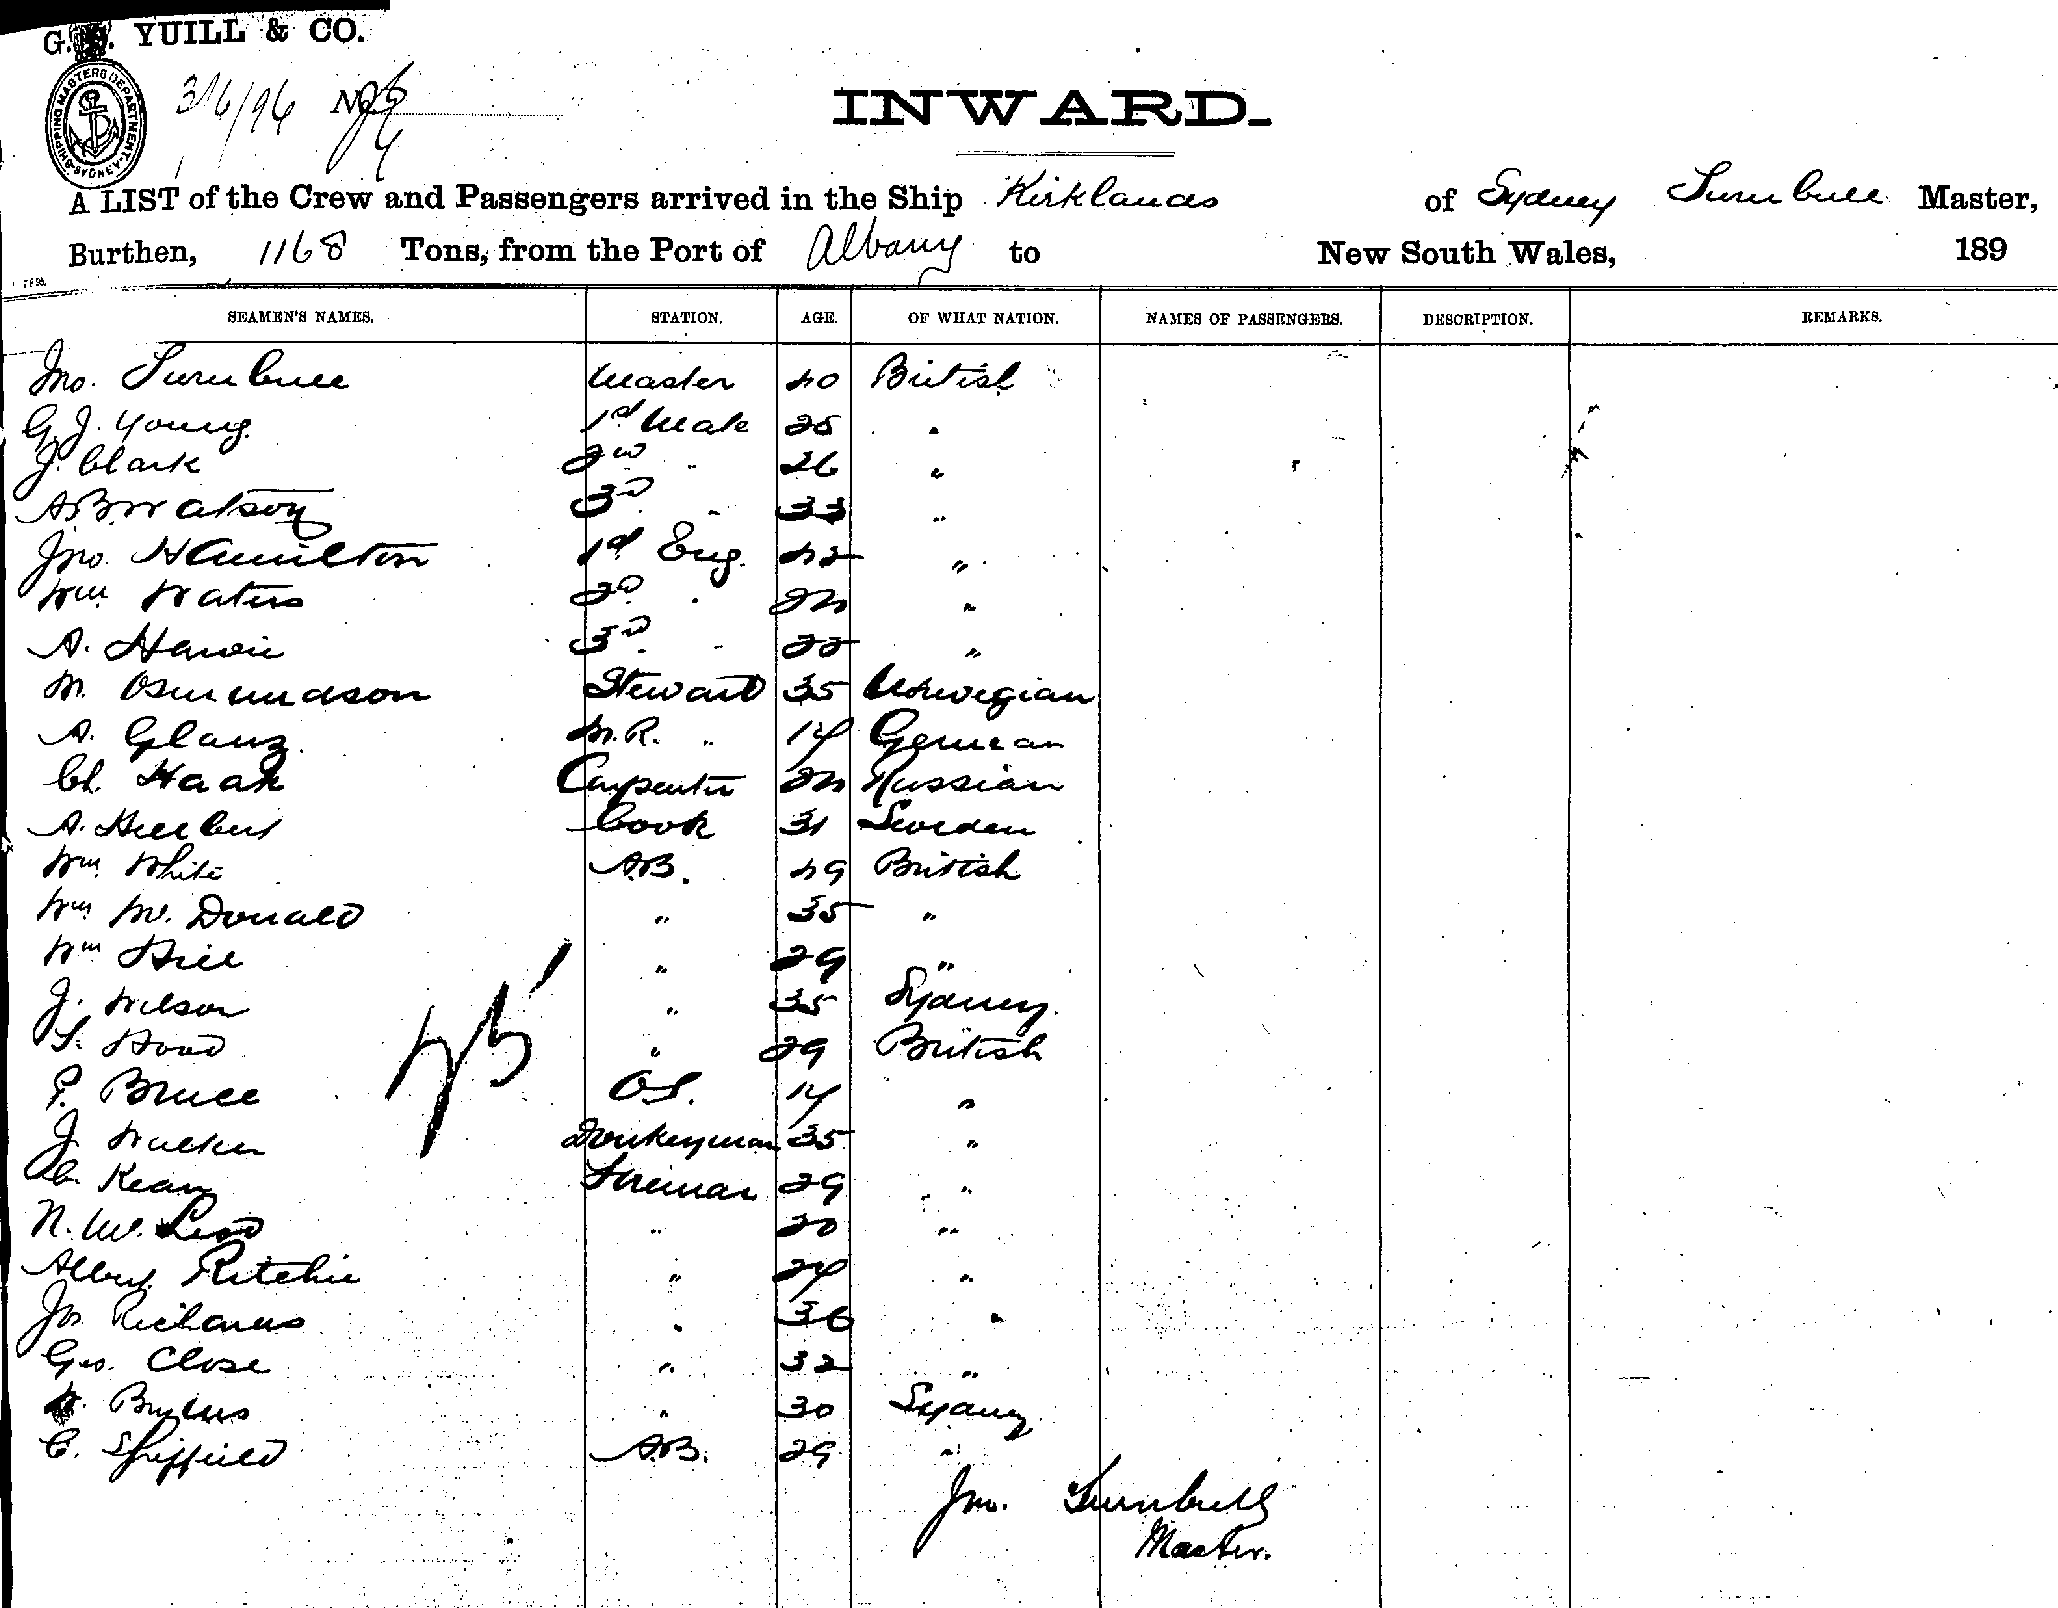 G. YUILL & CO.
SHIPPING MASTERS DEPARTMENT SYDNEY
3/6/96 No
INWARD.
A LIST of the Crew and Passengers arrived in the Ship Kirklands of Sydney Turnbull Master,
Burthen, 1168 Tons, from the Port of Albany to New South Wales, 189
SEAMEN'S NAMES. STATION. AGE. OF WHAT NATION. NAMES OF PASSENGERS. DESCRIPTION. REMARKS.
Jno. Turnbull Master 40 British
G. J. Young 1st Mate 25 "
J. Clark 2nd " 26 "
A B Watson 3rd " 33 "
Jno. Hamilton 1st Eng. 42 "
Wm Waters 2nd " 24 "
A. Howie 3rd " 22 "
M. Osmundson Steward 35 Norwegian
A. Glanz M.R. " 17 German
Ch. Haak Carpenter 24 Russian
A. Cook 31 Sweden
Wm White A.B. 49 British
Wm Mc. Donald " 35 "
Wm Hill " 29 "
J. Wilson " 35 Sydney
Hood " 29 British
P. Bruce O.S. 17 "
J. Walker Donkeyman 35 "
C. Kean Fireman 29 "
N. Mc. Leod " 20 "
Albert Ritchie " 27 "
Jas Richards " 36 "
Geo. Close " 32 "
" 30 Sydney
C. Sheffield A.B. 29 "
Jno. Turnbull
Master.